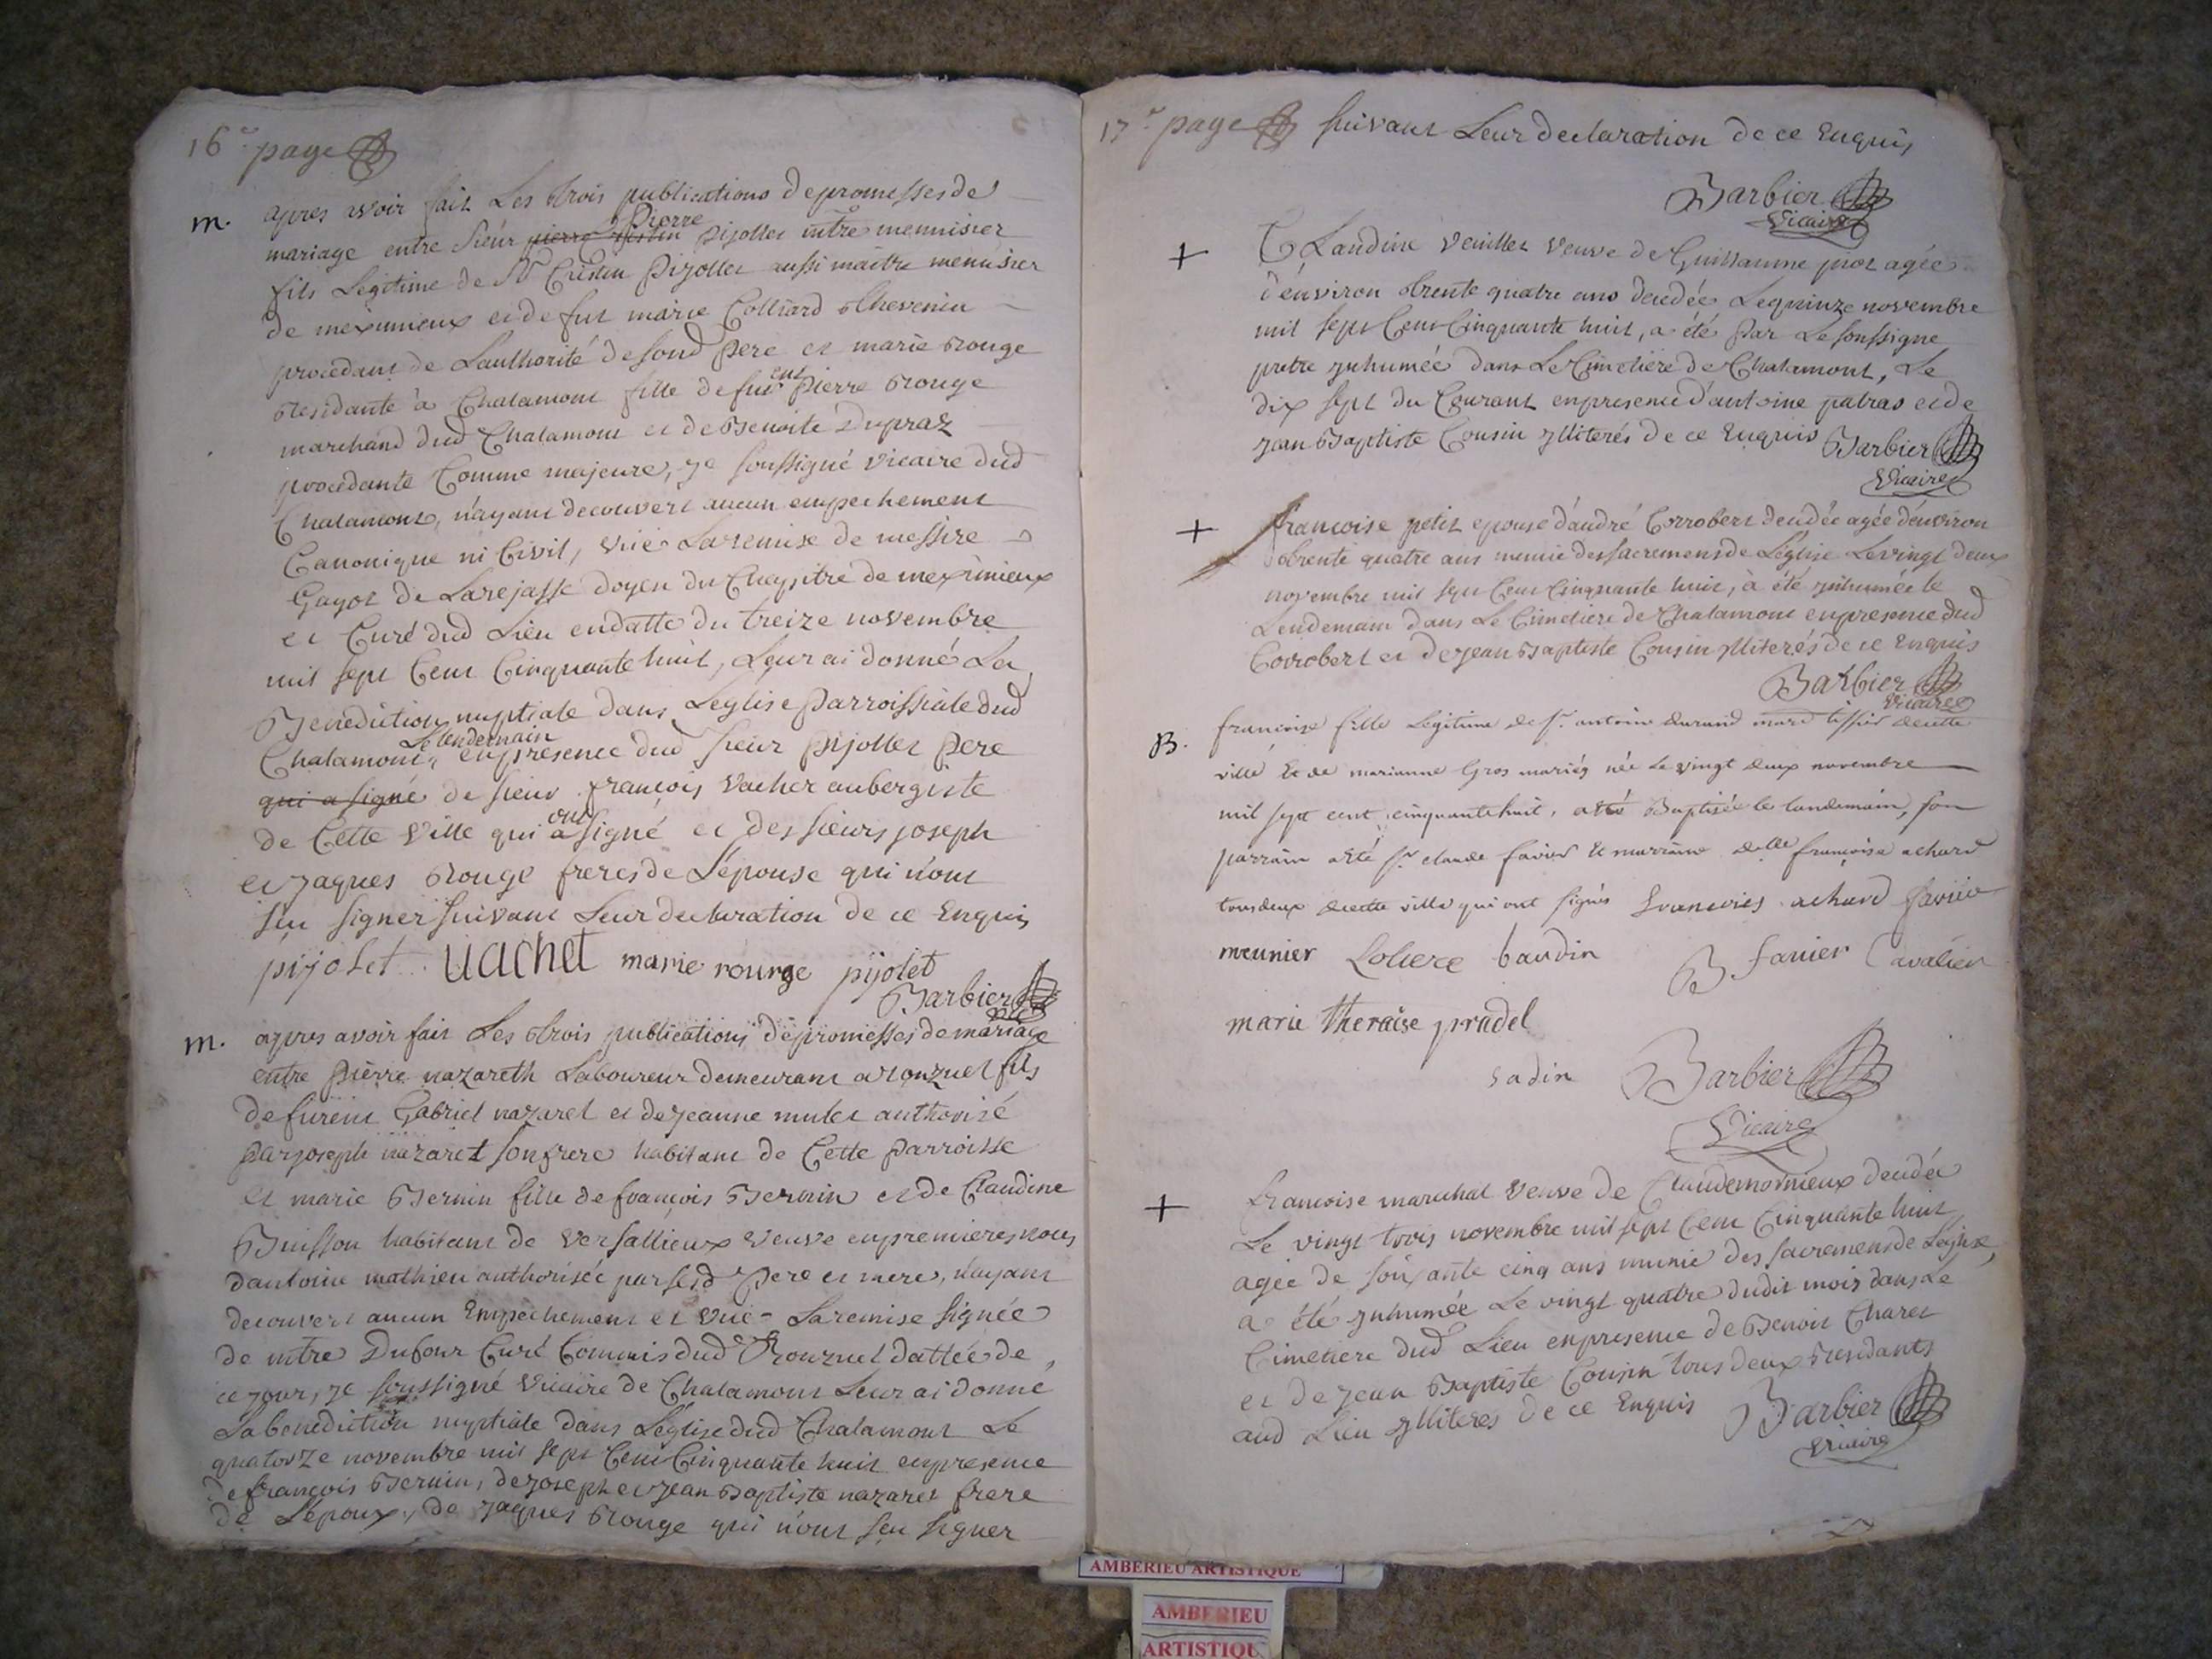 16e page
m. apres avoir fait Les trois publications de promesses de
mariage entre sieur pierre Cristin Pierre pijollet mtre mennisier
fils Legitime de Sr Cristin Pijollet aussi maitre menusier
de meximieux et de fut marie Colliard Thevenin
procedant de L'authorité de sond pere et marie rouge
residante à Chalamont fille de fut Pierre rouge
marchand dud Chalamont et de Benoite Dupraz
procedante Comme majeure, je soussigné vicaire dud
Chalamont, n'ayant decouvert aucun empechement
Canonique ni Civil, vüe La remise de messire
Gayot de Larejasse doyen du Chapitre de meximieux
et Curé dud Lieu en datte du treize novembre
mil sept Cent Cinquante huit, Leur ai donné La
Benediction nuptiale dans Leglise Parroissiale dud
Chalamont, Le lendemain en presence dud sieur pijollet Pere
qui a signé de sieur françois vachet aubergiste
de Cette ville qui a ont signé et des sieurs joseph
et jaques rouge freres de L'épouse qui n'ont
sçu signer suivant Leur declaration de ce Enquis
pijolet vachet marie rounge pijolet
Barbier vic
m. apres avoir fait Les trois publications de promesses de mariage
entre Pierre nazareth Laboureur demeurant a ronzuel fils
de furent Gabriel nazaret et de jeanne mulet authorisé
par joseph nazaret son frere habitant de Cette Parroisse
et marie Bernin fille de françois Bernin et de Claudine
Buisson habitant de versallieux veuve en premieres noces
d'antoine mathieu authorisée par sesd pere et mere, n'ayant
decouvert aucun Empechement et vüe La remise signée
de mtre Dufour Curé Commis dud Ronzuel dattée de
ce jour, je soussigné vicaire de Chalamont Leur ai donné
La benediction nuptiale dans L'église dud Chalamont Le
quatorze novembre mil sept Cent Cinquante huit en presence
de françois Bernin, de joseph et jean Baptiste nazaret frere
de L'époux, de jaques rouge qui n'ont sçu signer
17e page suivant Leur declaration de ce Enquis
Barbier
vicaire
+ Claudine veuillet veuve de Guillaume prot agée
d'environ trente quatre ans decedée Le quinze novembre
mil sept Cent Cinquante huit, a été par Le soussigné
pretre inhumée dans Le Cimetiere de Chalamont, Le
dix sept du Courant en presence d'antoine patras et de
jean Baptiste Cousin jlliterés de ce Enquis Barbier
vicaire
+ françoise petit epouse d'andré Corrobert decedée agée d'environ
trente quatre ans munie des sacremens de L'eglise Le vingt deux
novembre mil sept Cent Cinquante huit, à été inhumée le
Lendemain dans Le Cimetiere de Chalamont en presence dud
Corrobert et de jean Baptiste Cousin jlliterés de ce Enquis
Barbier
vicaire
B. françoise fille Legitime de sr. antoine durand tissier de cette
ville et de marianne Gros mariés née Le vingt deux novembre
mil sept cent cinquante huit, a été Baptisée le landemain, son
parrain a été sr claude favier et marraine delle françoise achard
tous deux de cette ville qui ont signés françoises achard favier
meunier Loliere baudin B favier Cavalier
marie theraise pradel
sadin Barbier
vicaire
+ françoise marechal veuve de Claude mornieux decedée
Le vingt trois novembre mil sept Cent Cinquante huit
agée de soixante cinq ans munie des sacremens de L'eglise,
a été inhumée Le vingt quatre dudit mois dans Le
Cimetiere dud Lieu en presence de Benoit Charet
et de jean Baptiste Cousin tous deux residants
aud Lieu jlliterés de ce Enquis Barbier
vicaire
AMBERIEU ARTISTIQUE
AMBERIEU
ARTISTIQU